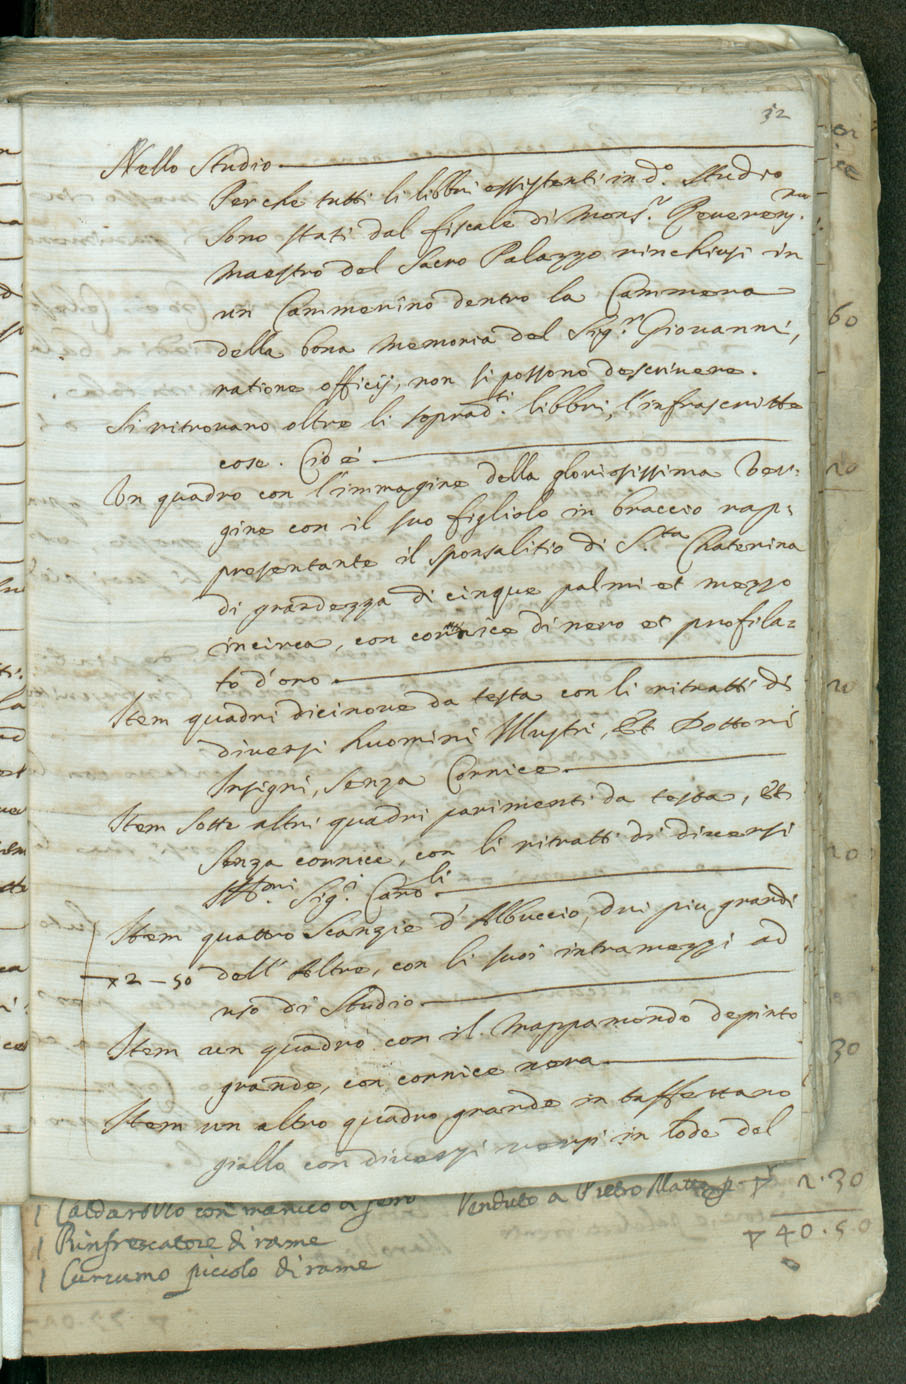 32
Nello Studio
Perche tutti li libbri essistenti in d.º Studio
sono stati dal fiscale di Mons.r Reverens.mo
Maestro del Sacro Palazzo rinchiusi in
un Cammerino dentro la Cammera
della bona memoria del Sig.r Giovanni,
ratione officij, non si possono descrivere.
Si ritrovano oltre li soprad.ti libbri, l'infrascritte
cose. Cio è
Un quadro con l'immagine della gloriosissima Ver-
gine con il suo figliolo in braccio rap-
presentante il sponsalitio di S.ta Chaterina
di grandezza di cinque palmi et mezzo
incirca, con cornice di nero et profila=
to d'oro
Item quadri dicinove da testa con li ritratti di
diversi huomini Illustri, Et Dottori
Insigni, senza Cornice
Item sette altri quadri parimenti da testa, Et
senza cornice, con li ritratti di diversi
Sig.i Card.li
Item quattro Scanzie d'Albuccio, dui piu grandi
dell'Altre, con li suoi intramezzi ad
x2-50
uso di Studio
Item un quadro con il Mappamondo depinto
grande, con cornice nera
Item un altro quadro grande in taffettano
giallo con diversi versi in lode del
1 Caldarozzo con manico di ferro Venduto a Pietro 2.30
1 Rinfrescatore di rame 40.50
1 piccolo di rame
60
20
20
20
30